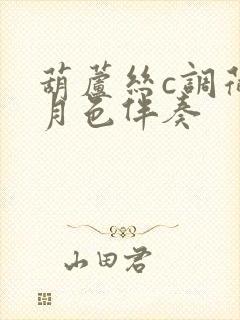 葫蘆絲c調荷
月色伴奏
山田君